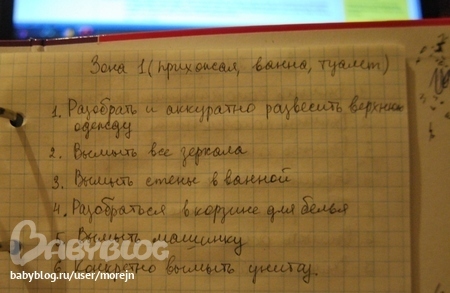 Зона 1 (прихожая, ванна, туалет)
1. Разобрать и аккуратно развесить верхнюю
одежду
2. Вымыть все зеркала
3. Вымыть стены в ванной
4. Разобраться в корзине для белья
5. Вымыть машинку
6. Конкретно вымыть унитаз.
BABYBLOG
babyblog.ru/user/morejn